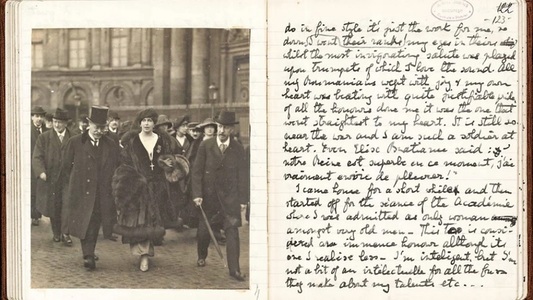 122
-123-
do in fine style it's just the work for me, so
down I went their ranks my eyes in theirs
whilst the most invigorating salute was played
upon trumpets of which I love the sound. All
my Roumanians wept with joy & my own
heart was beating with quite justifiable pride
of all the honours done me it was the one that
went straightest to my heart. It is still so
near the war and I am such a soldier at
heart. Even Elise Bratianu said: "
notre Reine est superbe en ce moment, j'ai
vraiment envie de pleurer!"
I came home for a short while and then
started off for the séance of the Academie
where I was admitted as only woman
amongst very old men - This too is consi-
dered an immence honour although its
one I realise less - I'm inteligent, but I'm
not a bit of an intelectuelle for all the fuss
they make about my talents etc...